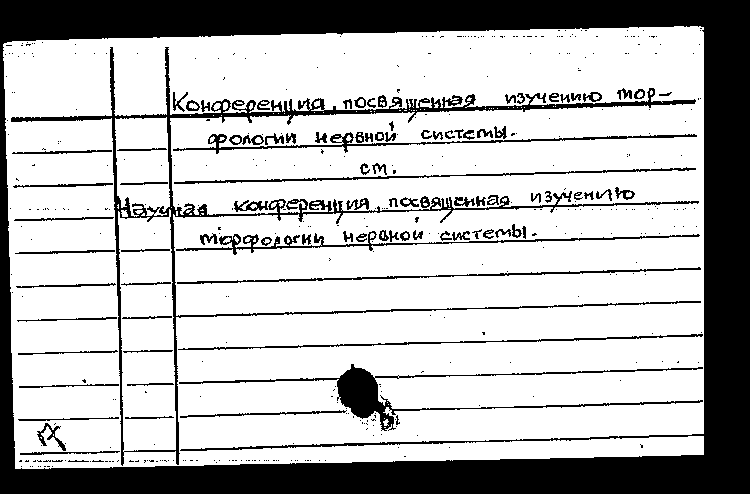 Конференция, посвященная изучению мор-
фологии нервной системы.
см.
Научная конференция, посвященная изучению
морфологии нервной системы.